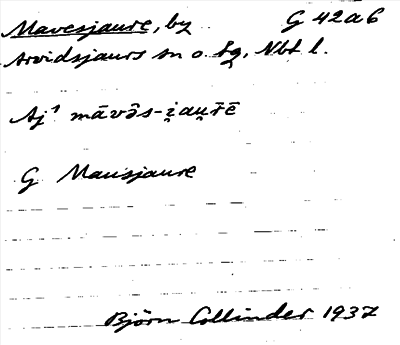 Mavesjaure, by G 42a6
Arvidsjaurs sn o. tg, Nbt l.
Aj¹ māvə̑s-i̯au̯rē
G Mausjaure
Björn Collinder 1937